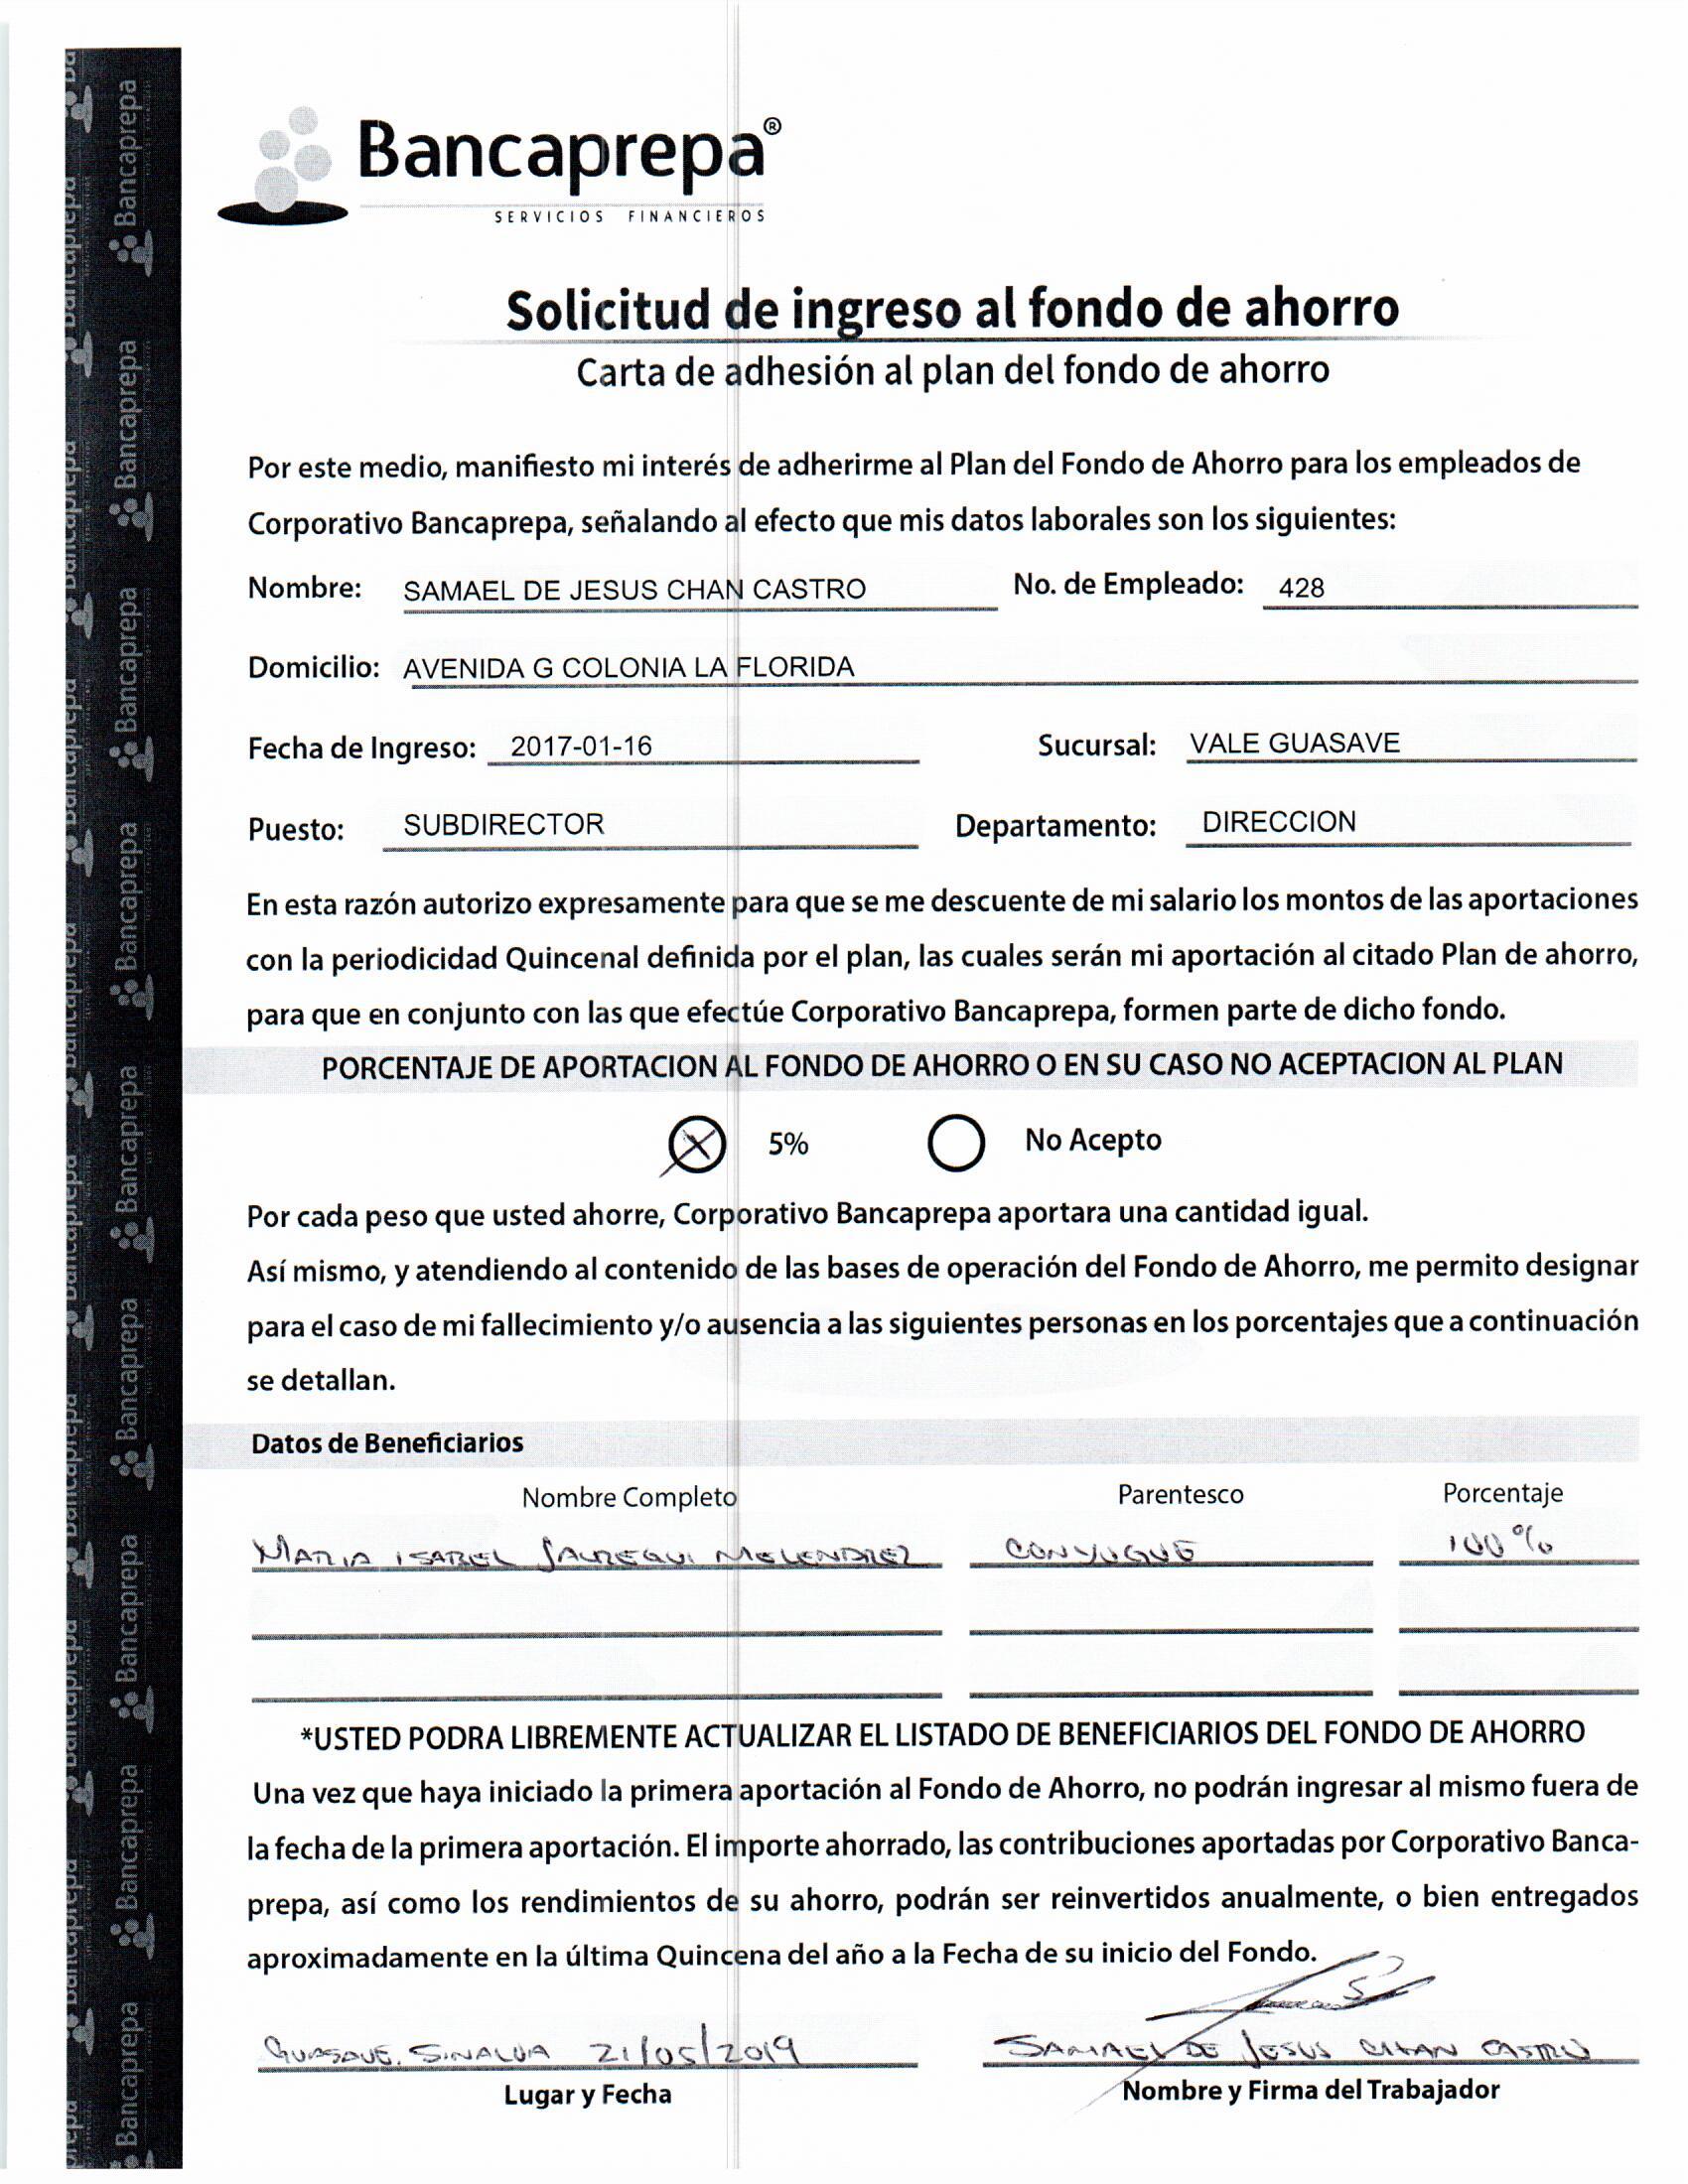 Bancaprepa®
SERVICIOS FINANCIEROS
Solicitud de ingreso al fondo de ahorro
Carta de adhesión al plan del fondo de ahorro
Por este medio, manifiesto mi interés de adherirme al Plan del Fondo de Ahorro para los empleados de
Corporativo Bancaprepa, señalando al efecto que mis datos laborales son los siguientes:
Nombre: SAMAEL DE JESUS CHAN CASTRO No. de Empleado: 428
Domicilio: AVENIDA G COLONIA LA FLORIDA
Fecha de Ingreso: 2017-01-16 Sucursal: VALE GUASAVE
Puesto: SUBDIRECTOR Departamento: DIRECCION
En esta razón autorizo expresamente para que se me descuente de mi salario los montos de las aportaciones
con la periodicidad Quincenal definida por el plan, las cuales serán mi aportación al citado Plan de ahorro,
para que en conjunto con las que efectúe Corporativo Bancaprepa, formen parte de dicho fondo.
PORCENTAJE DE APORTACION AL FONDO DE AHORRO O EN SU CASO NO ACEPTACION AL PLAN
5% No Acepto
Por cada peso que usted ahorre, Corporativo Bancaprepa aportara una cantidad igual.
Así mismo, y atendiendo al contenido de las bases de operación del Fondo de Ahorro, me permito designar
para el caso de mi fallecimiento y/o ausencia a las siguientes personas en los porcentajes que a continuación
se detallan.
Datos de Beneficiarios
Nombre Completo Parentesco Porcentaje
MARIA ISABEL JAUREGUI MELENDREZ CONYUGUE 100%
*USTED PODRA LIBREMENTE ACTUALIZAR EL LISTADO DE BENEFICIARIOS DEL FONDO DE AHORRO
Una vez que haya iniciado la primera aportación al Fondo de Ahorro, no podrán ingresar al mismo fuera de
la fecha de la primera aportación. El importe ahorrado, las contribuciones aportadas por Corporativo Banca-
prepa, así como los rendimientos de su ahorro, podrán ser reinvertidos anualmente, o bien entregados
aproximadamente en la última Quincena del año a la Fecha de su inicio del Fondo.
GUASAVE, SINALOA 21/05/2019 SAMAEL DE JESUS CHAN CASTRO
Lugar y Fecha Nombre y Firma del Trabajador